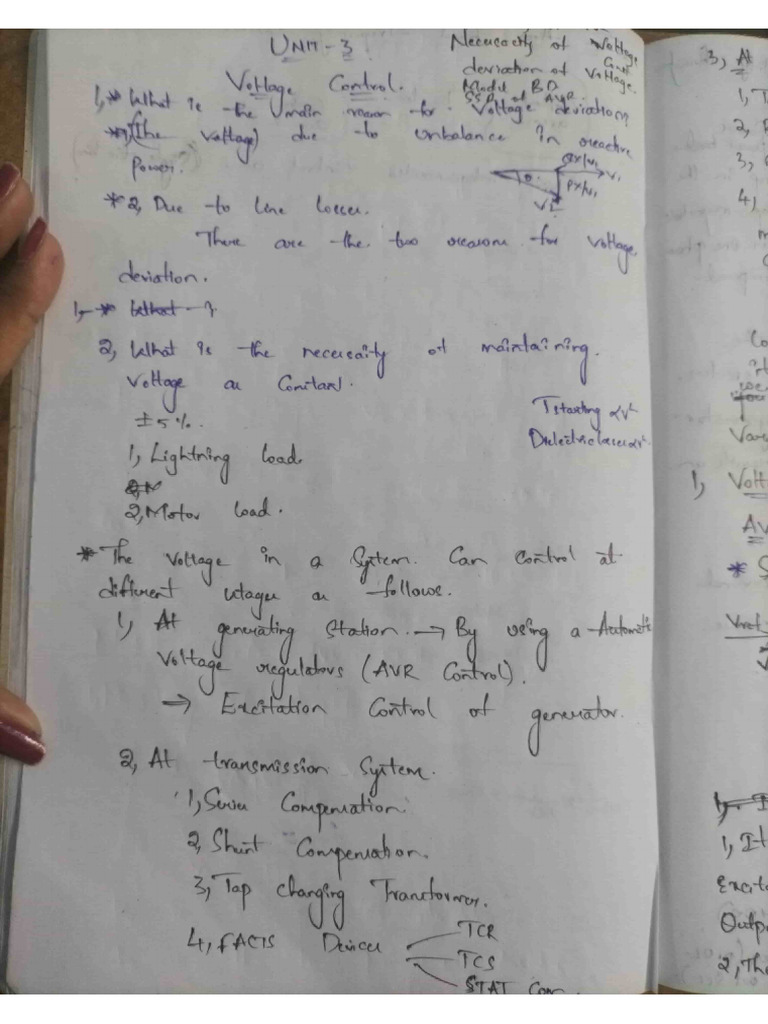 UNIT - 3
Necessity of Voltage
Const
deviation of Voltage.
Model BD
SSP of AVR
Voltage Control.
1, * What is the main reason for Voltage deviation?
*1, (The voltage) due to unbalance in reactive
Power.
QX/V1
V1
θ
PX/V1
V2
* 2, Due to Line Losses.
There are the two reasons for Voltage
deviation.
1, * What ?
2, What is the necessity of maintaining
Voltage as Constant.
± 5 %.
Tstarting αV²
Dielectric losses αV².
1, Lightning load.
2, Motor load.
* The Voltage in a System. Can control at
different stages as follows.
1, At generating Station. → By using a Automatic
Voltage regulators (AVR Control).
→ Excitation Control of generator.
2, At transmission System.
1, Series Compensation.
2, Shunt Compensation.
3, Tap changing Transformer.
4, FACTS Devices
TCR
TCS
STAT Com.
3, At
1, T
2,
3,
4,
m
Co
Vari
1, Volt
AV
* S
Vref
1, It
Excit
Outp
2, The